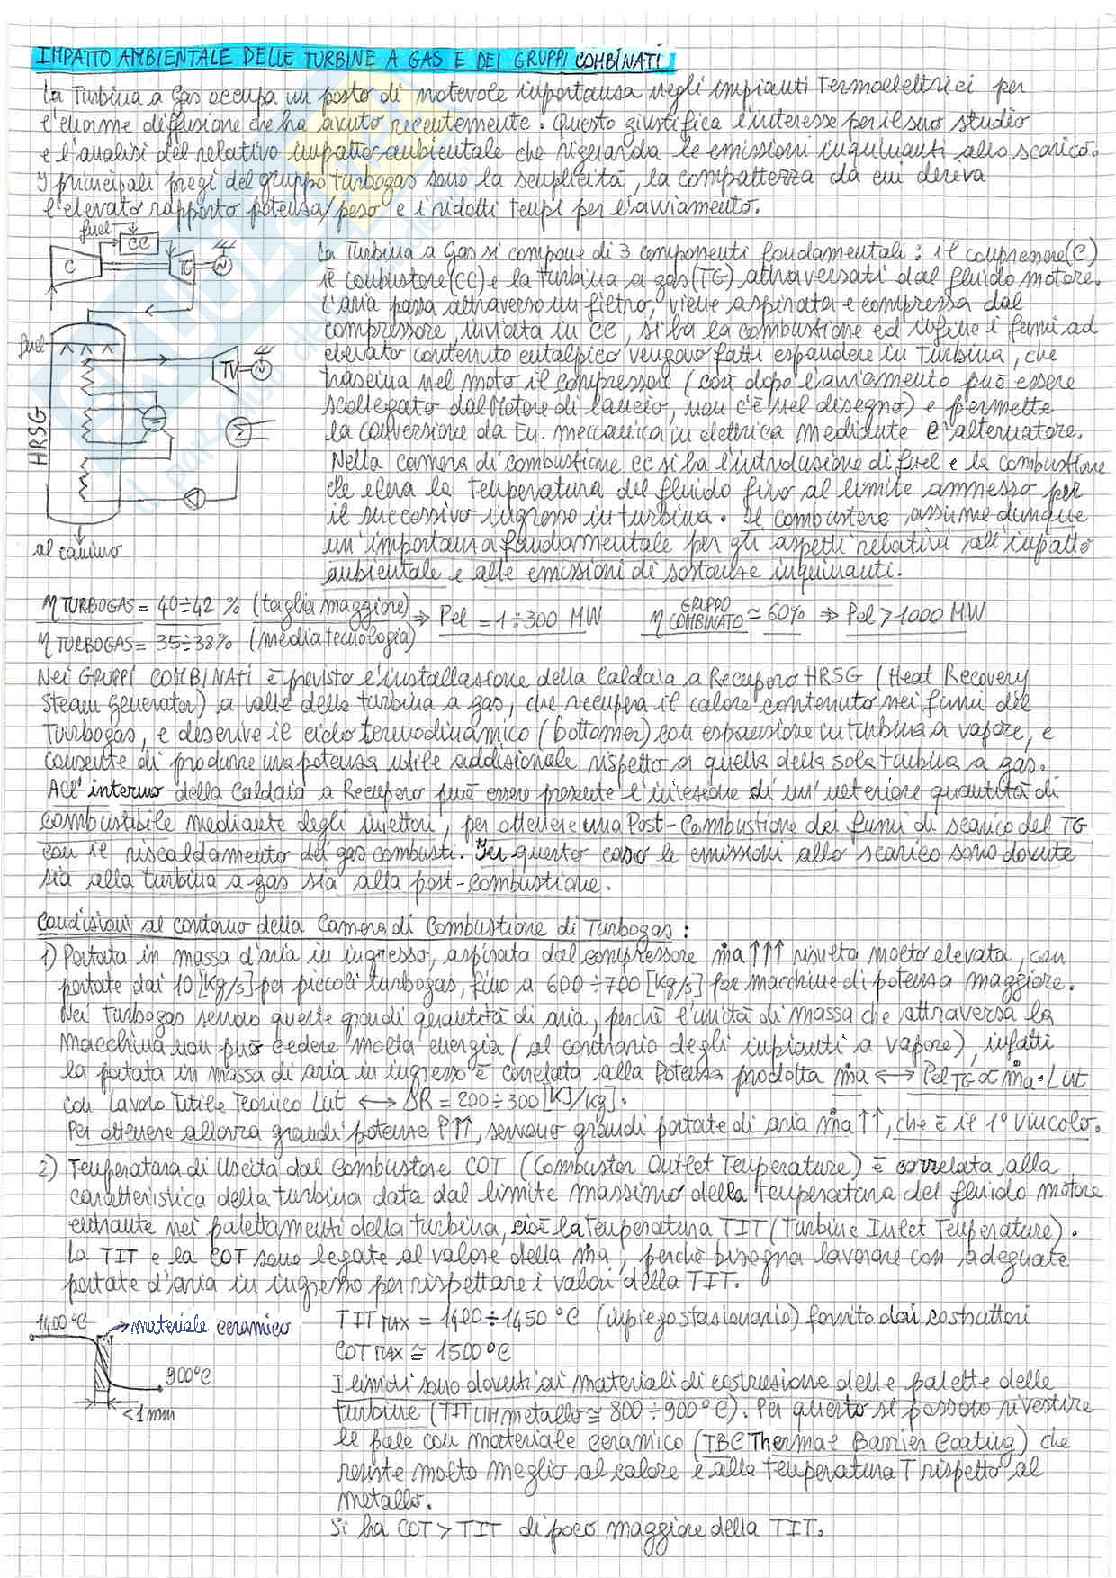 IMPATTO AMBIENTALE DELLE TURBINE A GAS E DEI GRUPPI COMBINATI
La Turbina a Gas occupa un posto di notevole importanza negli impianti Termoelettrici per
l'enorme diffusione che ha avuto recentemente. Questo giustifica l'interesse per il suo studio
e l'analisi del relativo impatto ambientale che riguarda le emissioni inquinanti allo scarico.
I principali pregi del gruppo turbogas sono la semplicità, la compattezza da cui deriva
l'elevato rapporto potenza/peso e i ridotti tempi per l'avviamento.
fuel
CC
C
TG
N
fuel
TV
N
HRSG
al camino
La Turbina a Gas si compone di 3 componenti fondamentali: il compressore (C)
il combustore (CC) e la turbina a gas (TG) attraversati dal fluido motore.
L'aria passa attraverso un filtro, viene aspirata e compressa dal
compressore, inviata in CC, si ha la combustione ed infine i fumi ad
elevato contenuto entalpico vengono fatti espandere in turbina, che
trascina nel moto il compressore (così dopo l'avviamento può essere
scollegato dal Motore di lancio, non c'è nel disegno) e permette
la conversione da En. meccanica in elettrica mediante l'alternatore.
Nella camera di combustione CC si ha l'introduzione di fuel e la combustione
che eleva la temperatura del fluido fino al limite ammesso per
il successivo ingresso in turbina. Il combustore assume dunque
un'importanza fondamentale per gli aspetti relativi all'impatto
ambientale e alle emissioni di sostanze inquinanti.
η TURBOGAS = 40÷42 % (taglia maggiore) ⇒ Pel = 1÷300 MW η GRUPPO COMBINATO ≃ 60% ⇒ Pel > 1000 MW
η TURBOGAS = 35÷38% (media tecnologia)
Nei GRUPPI COMBINATI è previsto l'installazione della Caldaia a Recupero HRSG (Heat Recovery
Steam Generator) a valle della turbina a gas, che recupera il calore contenuto nei fumi del
Turbogas, e descrive il ciclo termodinamico (bottomer) con espansione in turbina a vapore, e
consente di produrre una potenza utile addizionale rispetto a quella della sola turbina a gas.
All'interno della Caldaia a Recupero può essere presente l'iniezione di un'ulteriore quantità di
combustibile mediante degli iniettori, per ottenere una Post-Combustione dei fumi di scarico del TG
con il riscaldamento dei gas combusti. In questo caso le emissioni allo scarico sono dovute
sia alla turbina a gas sia alla post-combustione.
Condizioni al contorno della Camera di Combustione di Turbogas:
1) Portata in massa d'aria in ingresso, aspirata dal compressore ṁa ↑↑↑ risulta molto elevata, con
portate dai 10 [Kg/s] per piccoli turbogas, fino a 600÷700 [Kg/s] per macchine di potenza maggiore.
Nei turbogas servono queste grandi quantità di aria, perché l'unità di massa che attraversa la
macchina non può cedere molta energia (al contrario degli impianti a vapore), infatti
la portata in massa di aria in ingresso è correlata alla Potenza prodotta ṁa ⟷ Pel TG ∝ ṁa · Lut
con Lavoro Utile Teorico Lut ⟷ ΔR = 200÷300 [KJ/Kg].
Per ottenere allora grandi potenze P↑↑, servono grandi portate di aria ṁa ↑↑, che è il 1° Vincolo.
2) Temperatura di Uscita dal Combustore COT (Combustor Outlet Temperature) è correlata alla
caratteristica della turbina data dal limite massimo della temperatura del fluido motore
entrante nei palettamenti della turbina, cioè la temperatura TIT (Turbine Inlet Temperature).
La TIT e la COT sono legate al valore della ṁa, perché bisogna lavorare con adeguate
portate d'aria in ingresso per rispettare i valori della TIT.
1400 °C
materiale ceramico
900°C
<1mm
TIT MAX = 1400÷1450 °C (impiego stazionario) fornito dai costruttori
COT MAX ≃ 1500 °C
I limiti sono dovuti ai materiali di costruzione delle palette delle
turbine (TIT LIM metallo ≃ 800÷900°C). Per questo si possono rivestire
le pale con materiale ceramico (TBC Thermal Barrier Coating) che
resiste molto meglio al calore e alla temperatura T rispetto al
metallo.
Si ha COT > TIT di poco maggiore della TIT.